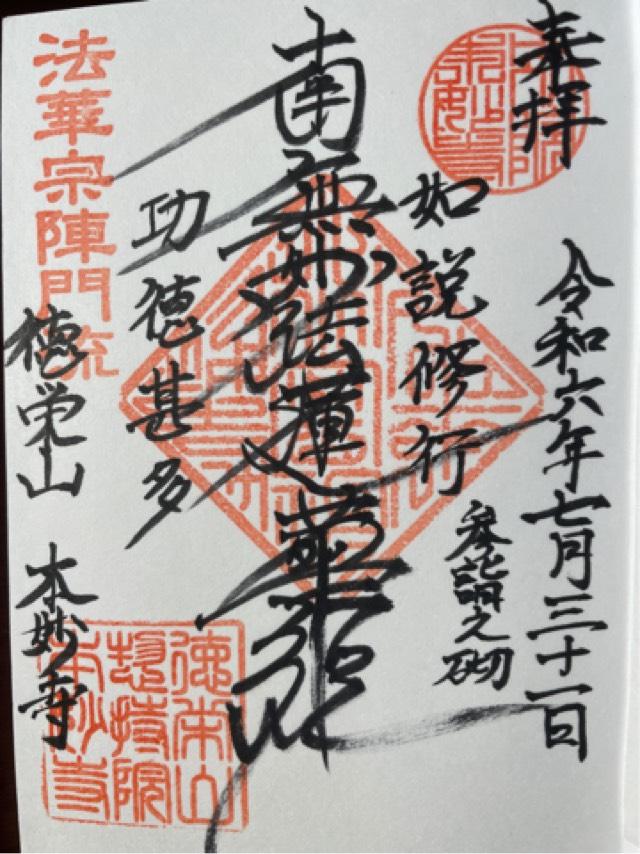 奉拝
令和六年七月三十一日
参詣之砌
如説修行
南無妙法蓮華経
功徳甚多
法華宗陣門流
徳栄山 本妙寺
徳栄山
総持院
本妙寺